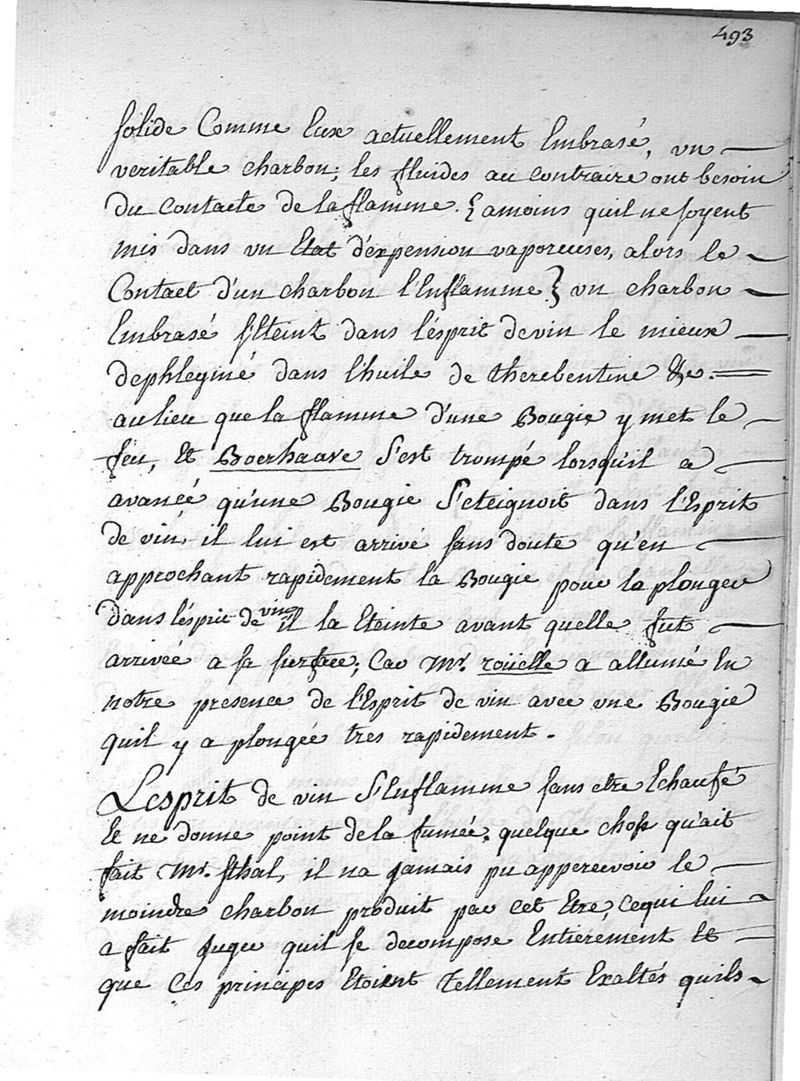 493
solide Comme lux actuellement Embrasé, vn
veritable charbon; les fluides au contraire ont besoin
du Contacte de la flamme. { amoins quil ne soyent
mis dans vn Etat d'expension vaporeuses, alors le
Contact d'un charbon l'Enflamme } vn charbon
Embrasé s'Eteint dans l'esprit de vin le mieux
dephlegmé dans l'huile de therebentine &c.
aulieu que la flamme d'une Bougie y met le
feu, Et Boerhaave s'est trompé lorsqu'il a
avancé qu'une Bougie S'eteignoit dans l'Esprit
de vin, il lui est arrivé sans doute qu'en
approchant rapidement la Bougie pour la plonger
dans l'esprit de vin il la Eteinte avant quelle fut
arrivée a sa surface; Car Mr. roüelle a allumé En
notre presence de l'Esprit de vin avec vne Bougie
quil y a plongée tres rapidement.
L'esprit de vin S'Enflamme sans etre Echaufé
Et ne donne point de la fumée, quelque chose qu'ait
fait Mr. Sthal, il na jamais pu appercevoir le
moindre charbon produit par cet Etre, cequi lui
a fait juger quil se decompose Entierement Et
que Ces principes Etoient tellement Exaltés quils